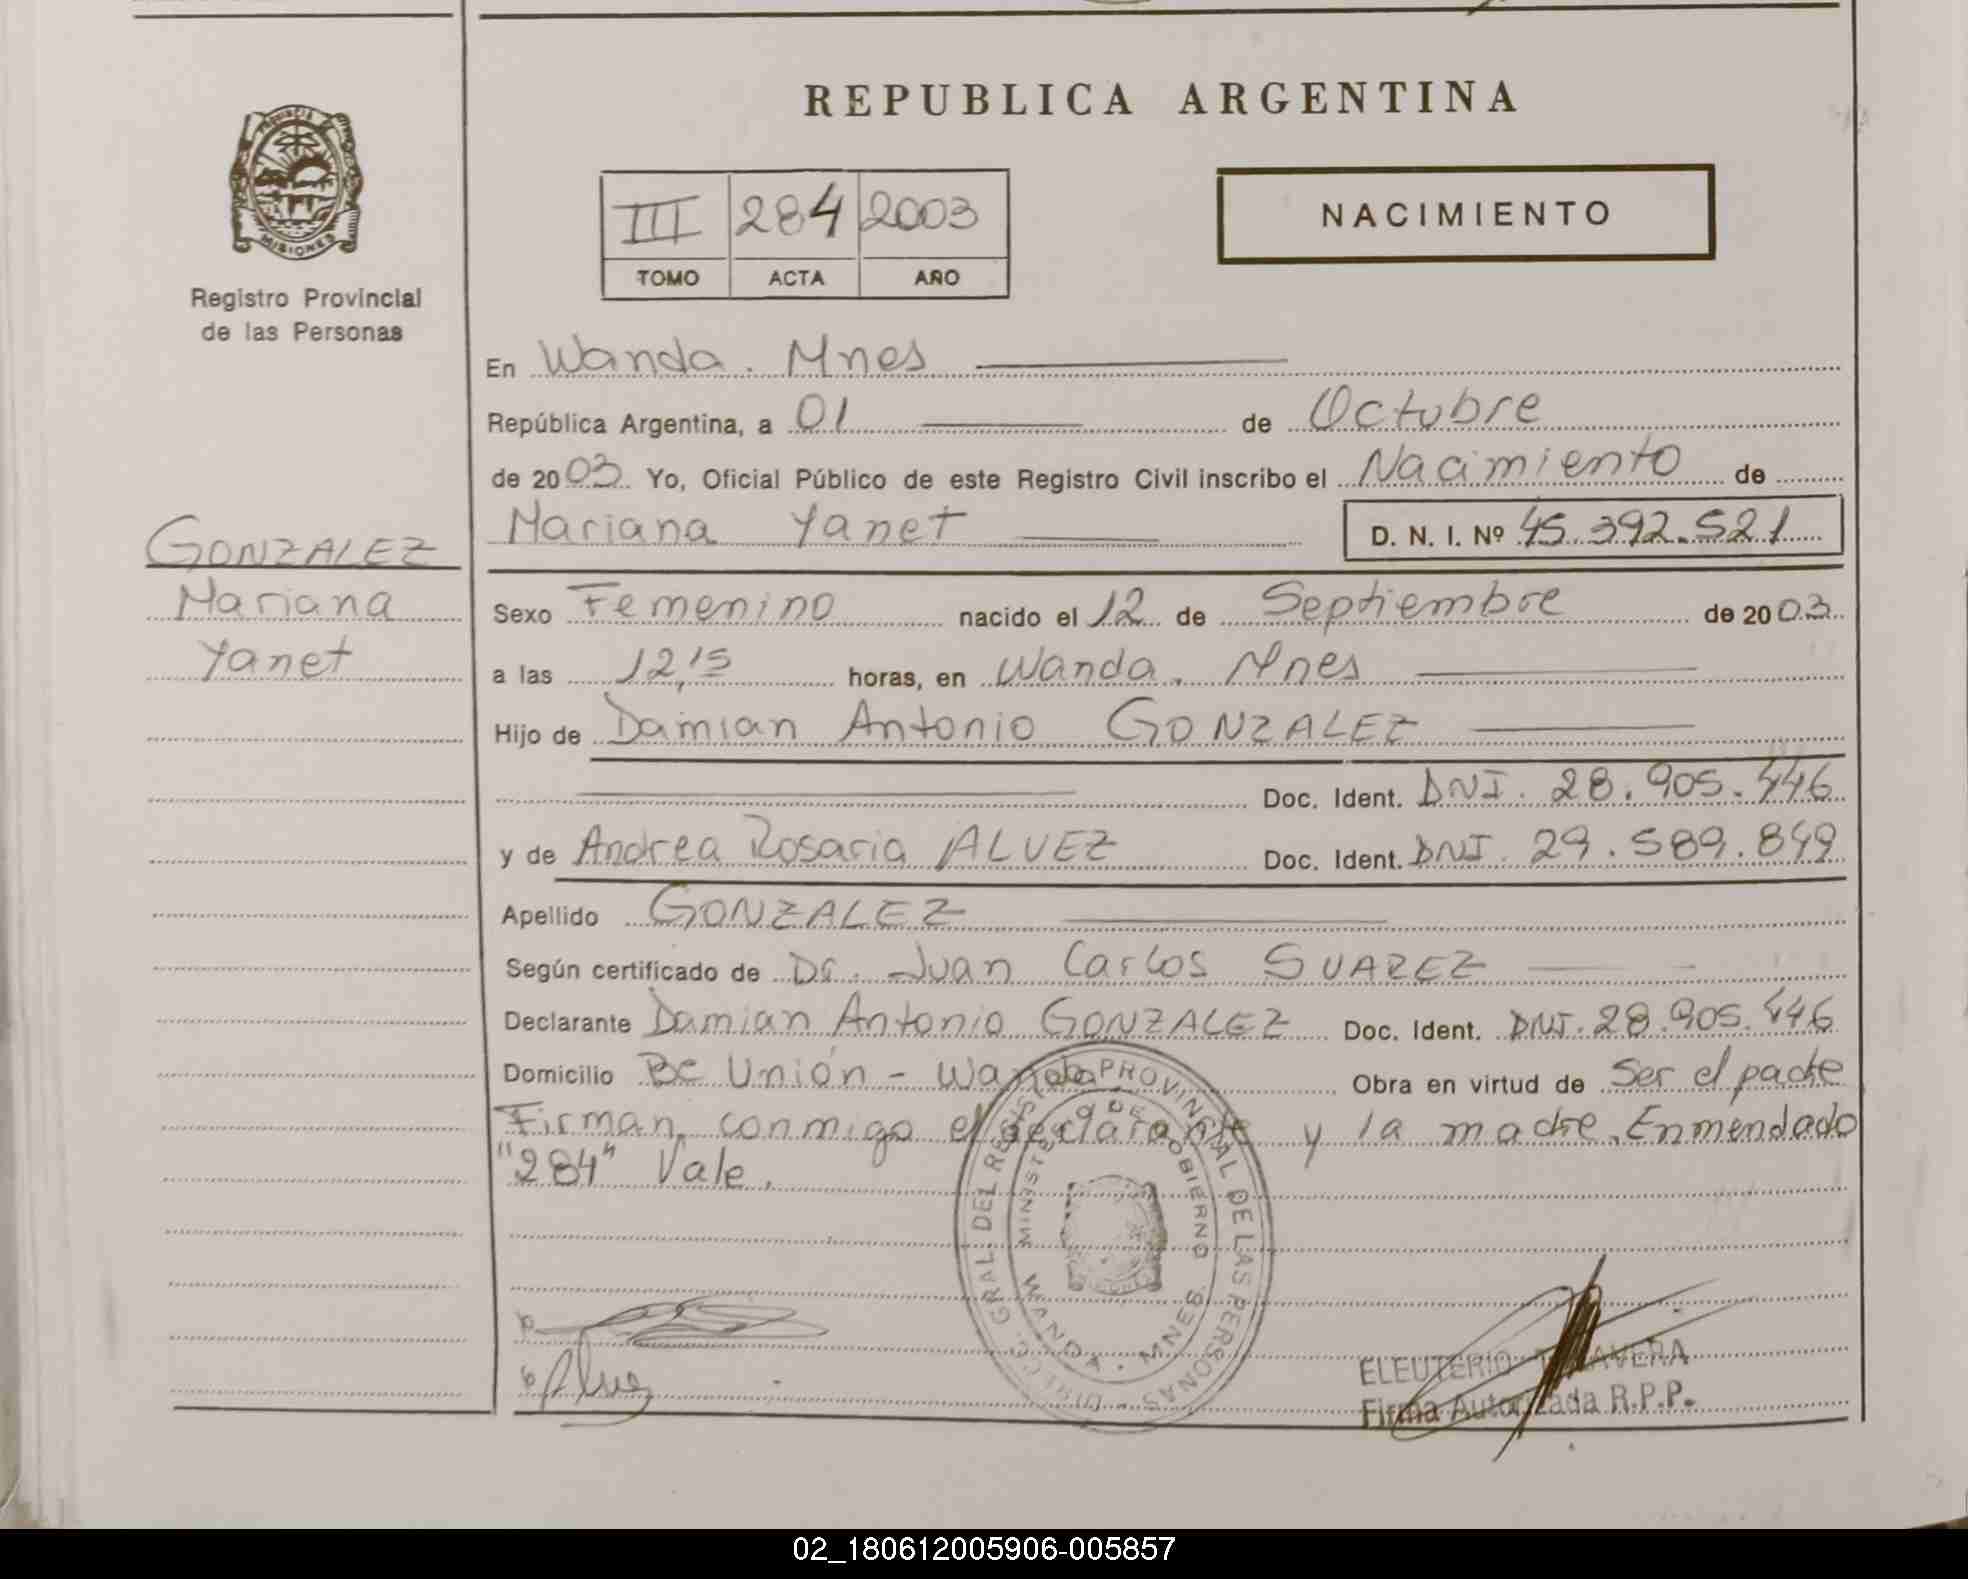 REPUBLICA ARGENTINA
PROVINCIA DE
MISIONES
Registro Provincial
de las Personas
III 284 2003
TOMO ACTA AÑO
NACIMIENTO
En Wanda. Mnes
República Argentina, a 01 de Octubre
de 2003 Yo, Oficial Público de este Registro Civil inscribo el Nacimiento de
Mariana Yanet D. N. I. Nº 45.392.521
GONZALEZ
Mariana
Yanet
Sexo Femenino nacido el 12 de Septiembre de 2003
a las 12,15 horas, en Wanda. Mnes
Hijo de Damian Antonio GONZALEZ
Doc. Ident. DNI. 28.905.446
y de Andrea Rosaria ALVEZ Doc. Ident. DNI. 29.589.849
Apellido GONZALEZ
Según certificado de Dr. Juan Carlos SUAREZ
Declarante Damian Antonio GONZALEZ Doc. Ident. DNI. 28.905.446
Domicilio Bº Unión - Wanda Obra en virtud de Ser el padre
Firman conmigo el declarante y la madre. Enmendado
"284" Vale.
DIREC. GRAL. DEL REGISTRO PROVINCIAL DE LAS PERSONAS
MINISTERIO DE GOBIERNO
WANDA - MNES.
Alvez
ELEUTERIO TALAVERA
Firma Autorizada R.P.P.
02_180612005906-005857